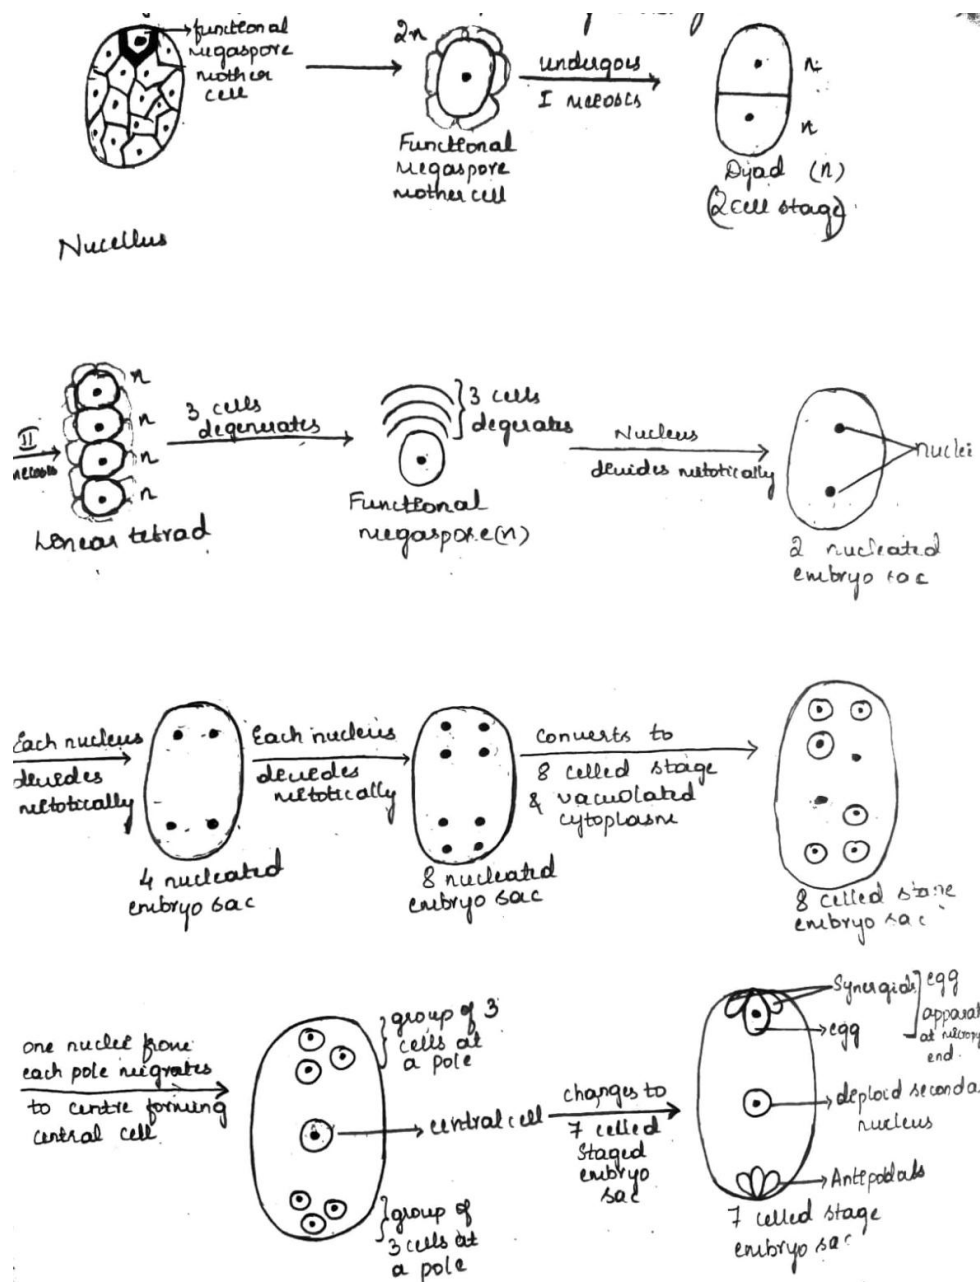 functional
megaspore
mother
cell
Nucellus
2n
Functional
megaspore
mother cell
undergoes
I meiosis
n
n
Dyad (n)
(2 cell stage)
II
meiosis
n
n
n
n
Linear tetrad
3 cells
degenerates
3 cells
degerates
Functional
megaspore(n)
Nucleus
devides mitotically
nuclei
2 nucleated
embryo sac
Each nucleus
devides
mitotically
4 nucleated
embryo sac
Each nucleus
devedes
mitotically
8 nucleated
embryo sac
Converts to
8 celled stage
& vacuolated
cytoplasm
8 celled stage
embryo sac
one nuclei from
each pole migrates
to centre forming
central cell
group of 3
cells at
a pole
central cell
group of
3 cells at
a pole
changes to
7 celled
staged
embryo
sac
Synergids
egg
egg
apparat
at micropy
end.
deploid seconda
nucleus
Antipodals
7 celled stage
embryo sac